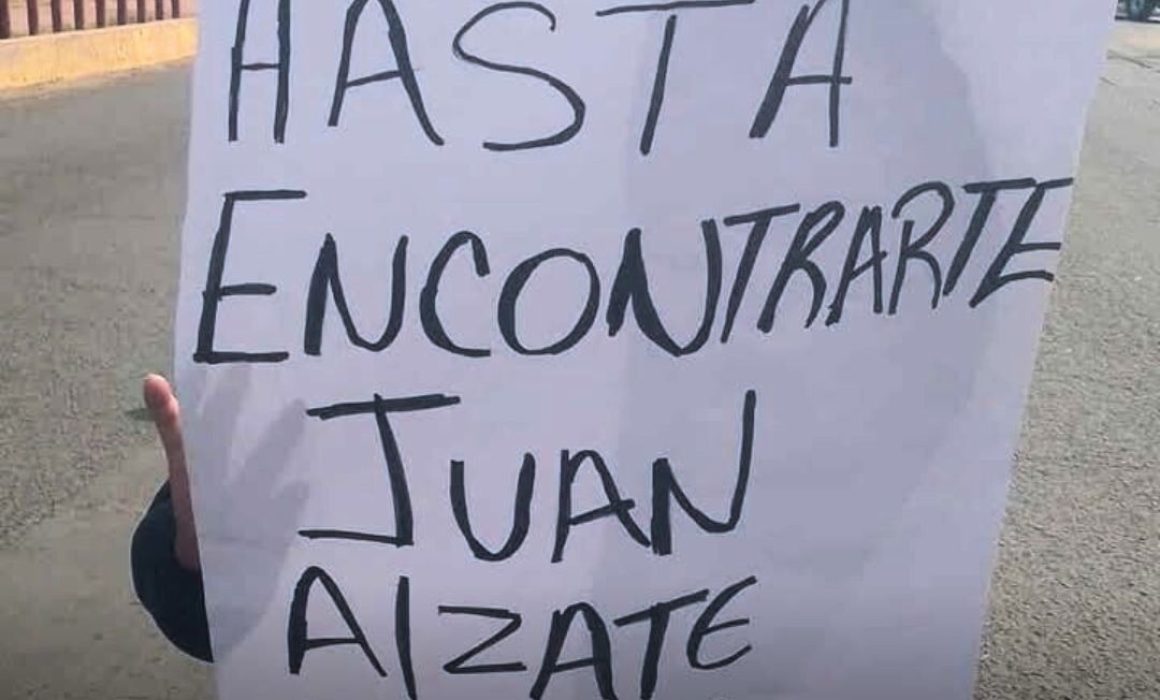 HASTA
ENCONTRARTE
JUAN
AlZATE